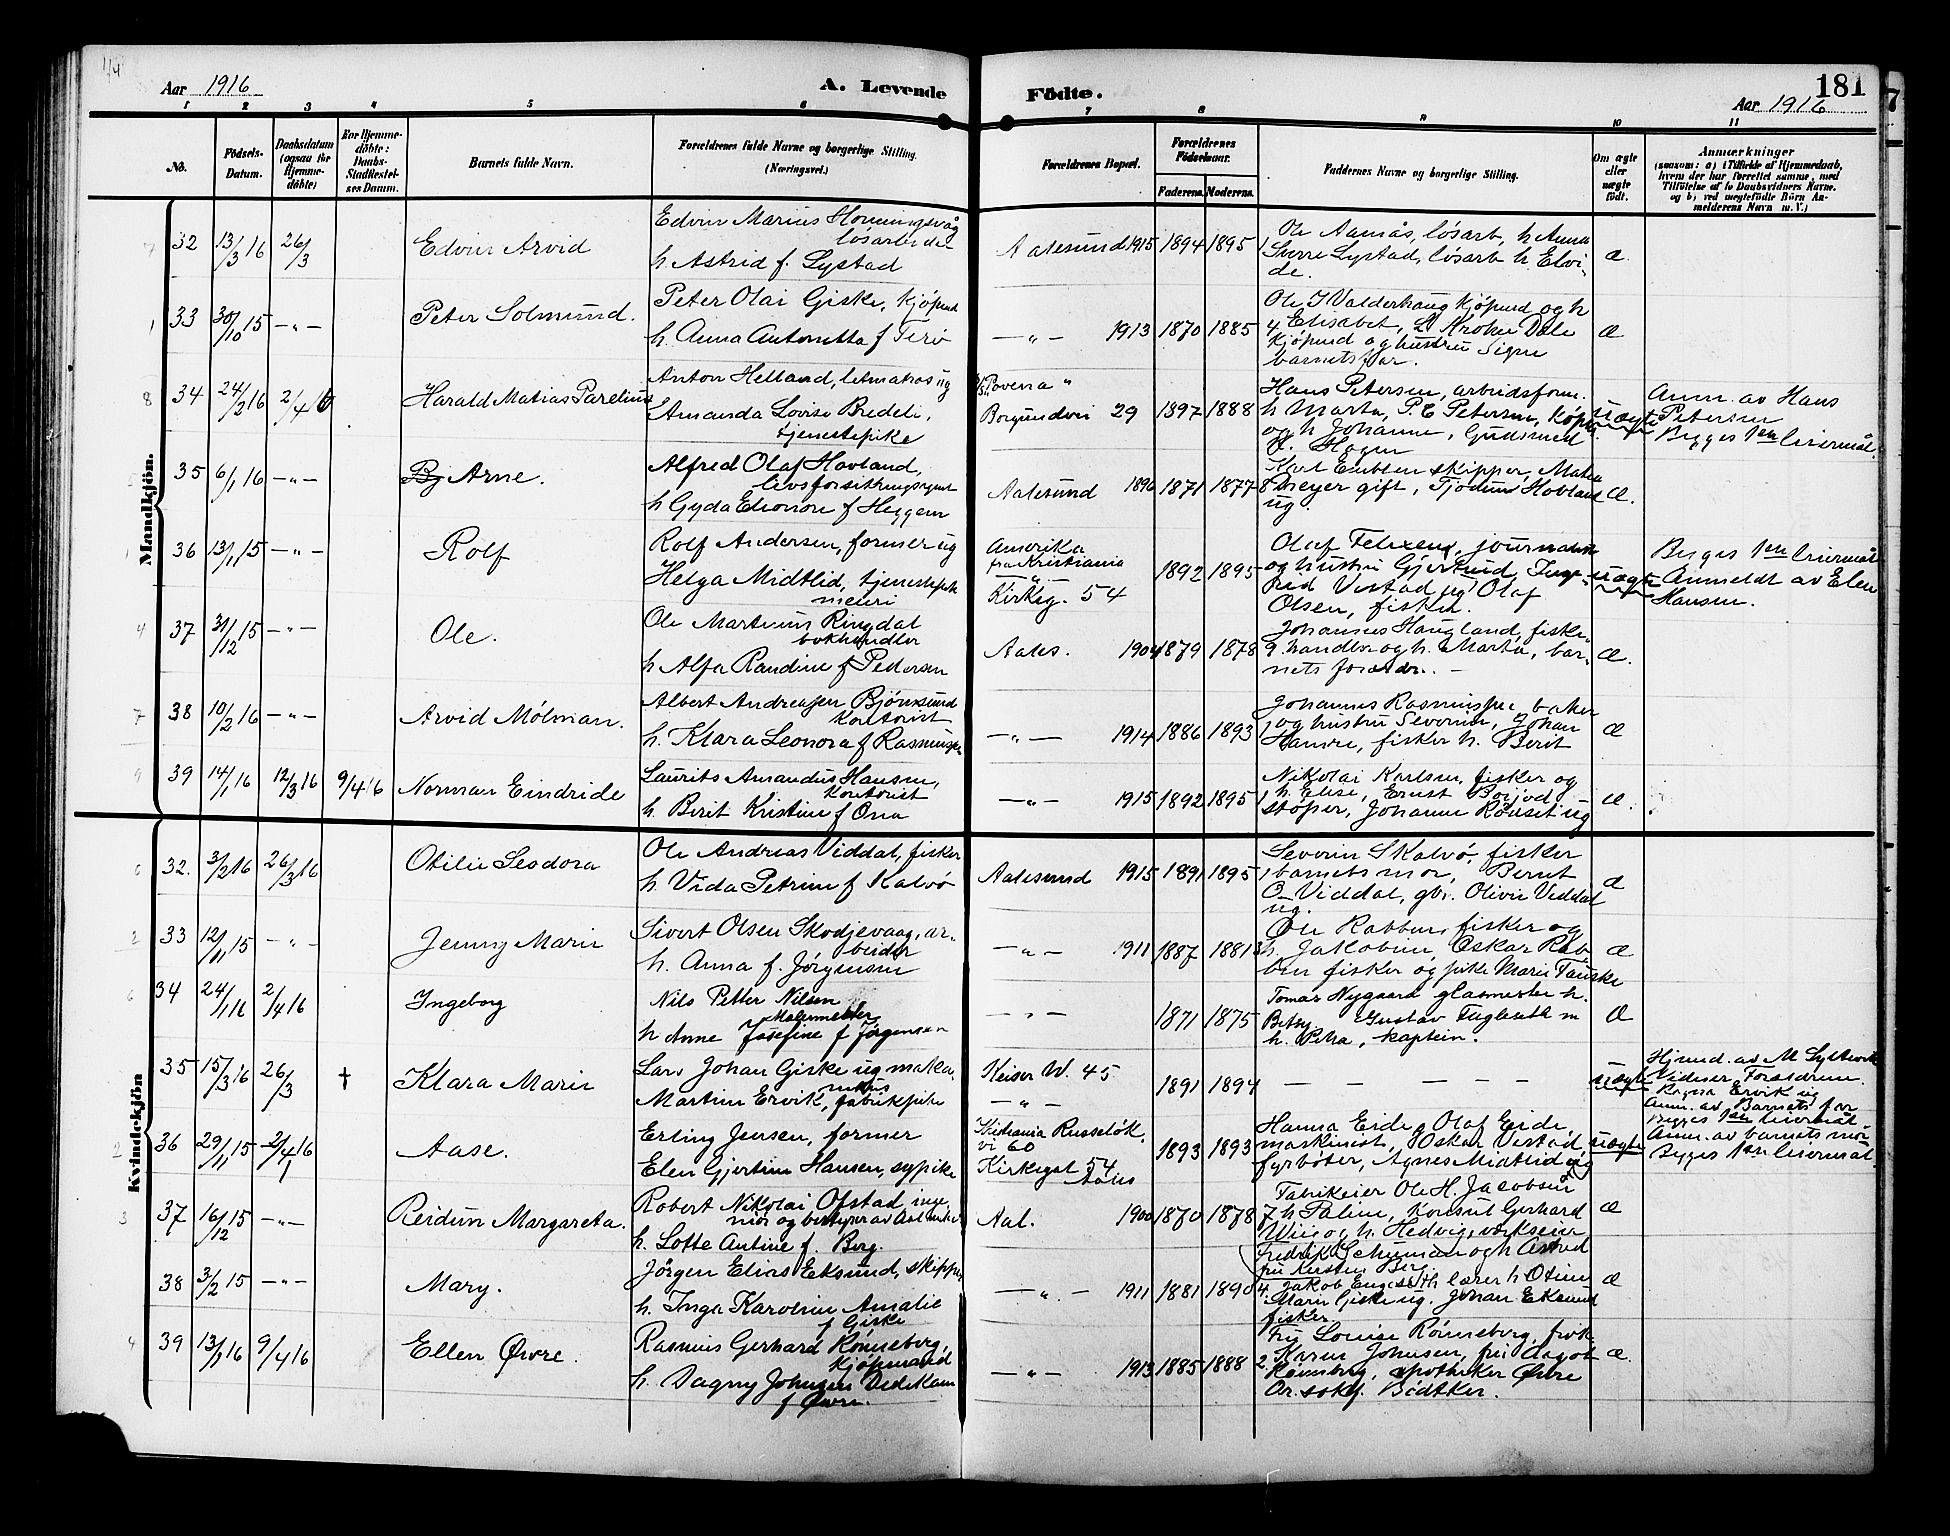 1/4
Aar 1916
A. Levende
Fødte.
181
Aar 1916
1 2 3 4 5 6 7 8 9 10 11
No.
Fødsels-
Datum.
Daabsdatum
(ogsaa for
Hjemme-
døbte)
For Hjemme-
døbte:
Daabs-
Stadfæstel-
ses Datum.
Barnets fulde Navn.
Forældrenes fulde Navne og borgerlige Stilling.
(Næringsvei.)
Forældrenes Bopæl.
Forældrenes
Fødselsaar.
Faderens. Moderens.
Faddernes Navne og borgerlige Stilling.
Om ægte
eller
uægte
født.
Anmærkninger
(saasom: a) i Tilfælde af Hjemmedaab,
hvem der har forrettet samme, med
Tilføielse af to Daabsvidners Navne.
og b) ved uægtefødte Børn An-
melderens Navn m. V.)
Mandkjøn.
32 13/3 16 26/3 Edvin Arvid
Edvin Marius Honningsvåg
løsarbeider
h. Astrid f. Lystad
Aalesund 1915 1894 1895
Ole Aamås, løsarb, h Anna
Sverre Lystad, løsarb h Elvi-
de.
æ.
33 30/10 15 -"- Peter Solmund.
Peter Olai Giske, kjøpmd
h. Anna Antonetta f Terø
-"- 1913 1870 1885
Ole J Valderhaug kjøpmd og h
4 Elisabet, L Krohn Dale
kjøpmd og hustru Signe
barnets far.
æ
34 24/2 16 2/4 16 Harald Matias Parelius
Anton Helland, letmatros ug
Amanda Lovise Bredeli,
tjenestepike
Borgundvei 29 1897 1888
Hans Petersen, arbeidsform.
h Marta, P. E Petersen, køpm.
og h Johanne, Gudsmed
H. Hagen
uægte
Anm. av Hans
Petersen
Begges 1en leiermål.
35 6/1 16 -"- Arne.
Alfred Olaf Hovland,
livsforsikringsagent
h Gyda Eleonore f Heggem
Aalesund 1896 1871 1877
skipper,
Meyer gift, Hovland
ug.
æ.
36 13/11 15 -"- Rolf
Rolf Andersen, former ug
Helga Midtlid, tjenestepik
meieri
Amerika
fra Kristiania
-"-
Kirkeg. 54
1892 1895
Olaf journalist
og hustru Gjertrud,
Vestad ug Olaf
Olsen, fisker.
uægte
Begges 1en leiermål
Anmeldt av Elen
Hansen.
37 31/12 15 -"- Ole.
Ole Martinus Ringdal
bokhandler
h Alfa Randine f Pedersen
Aales. 1904 1879 1878
Johannes Haugland, fiske-
9 handler og h. Marta, bar-
nets forældr. -
æ.
38 10/2 16 -"- Arvid Mólman.
Albert Andreasen Bjørnsund
kontorist
h. Klara Leonora f Rasmussen
-"- 1914 1886 1893
Johannes Rasmussen baker
1 og hustru Severine, Johan
Hamre, fisker h. Berit
æ
39 14/1 16 12/3 16 9/4 16 Norman Eindride
Laurits Amandus Hansen,
kontorist
h. Berit Kristine f Ona
-"- 1915 1892 1895
Nikolai Karlsen, fisker og
1 h. Elise, Ernst
støper, Johanne Rønset ug
æ.
Kvindekjøn
32. 3/2 16 26/3 16 Otilie Lesdora
Ole Andreas Viddal, fisker
h. Vida Petrine f Kalvø
Aalesund 1915 1891 1895
Severin Skalvø, fisker
1 barnets mor, Bernt
O Viddal, gbr. Olivie Viddal
ug.
æ
33 12/11 15 -"- Jenny Marie
Sivert Olsen Skodjevaag, ar-
beider
h. Anna f. Jørgensen
-"- 1911 1887 1881
Ole Rabben, fisker og
3 h. Jakobine, Oskar Rab-
ben fisker og pike Marie Fauske
æ
34 24/1 16 2/4 16 Ingeborg
Nils Petter Nilsen
Malermester
h Anne Josefine f Jørgensen
-"- 1871 1875
Tomas Nygaard glasmester h.
Betsy Gustav
h. Petra, kaptein.
Æ
35 15/3 16 26/3 † Klara Marie
Lars Johan Giske ug maka-
nikus
Martine Ervik, fabrikpike
Keiser W. 45
-"-
1891 1894
- - - - -
uægte
Hjmd. av M
Vidner Foræld­rene
Ragna Ervik ug
Anm. av Barnets far
Begges 1en leiermål.
36 29/11 15 2/4 16 Aase.
Erling Jensen, former
Elen Gjertine Hansen, sypike
Kristiania Russeløk.
vi 60
Kirkegt 54
Aales
1893 1893
Hanna Eide, Olaf Eide,
maskinist, Oskar Vestad,
fyrbøter, Agnes Midtlid ug
uægte
Anm. av barnets mor
Begges 1en leiermål
37 16/12 15 -"- Reidun Margareta.
Robert Nikolai Ofstad, inge-
niør og bestyrer av
h. Lotte Antine f. Berg.
Aal. 1900 1870 1878
Fabrikeier Ole H. Jacobsen
7 h Paline, Konsul Gerhard
Wiig og h. Hedvig, verkseier
Fredrik Schuman og h Astrid
fru Kirsten Berg.
æ
38 3/2 15 -"- Mary.
Jørgen Elias Eksund, skipper
h. Inga Karoline Amalie
f Giske
-"- 1911 1881 1890
4. Jakob lærer h Otine
Marie Giske ug. Johan Eksund
fisker
æ
39 13/1 16 9/4 16 Ellen Øwre.
Rasmus Gerhard Rønneberg,
kjøpmand
h. Dagny Johnsen Dedekam
f Øwre.
-"- 1913 1885 1888
Fru Louise Rønneberg, frøk.
2. Karen Johnsen, fru Aagot
Rønneberg, apotheker Øwre
Or. sakf. Bødtker.
æ.